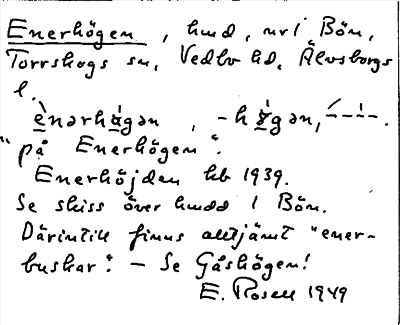 Enerhögen, hmd, nr 1 Bön,
Torrskogs sn, Vedbo hd, Älvsborgs
l.
ènərhá̱gən, -hǿgən, –́–̀–.
"på Enerhögen".
Enerhöjden kb 1939.
Se skiss över hmdd 1 Bön.
Därintill finns alltjämt "ener-
buskar". – Se Gåshögen!
E. Rosell 1949